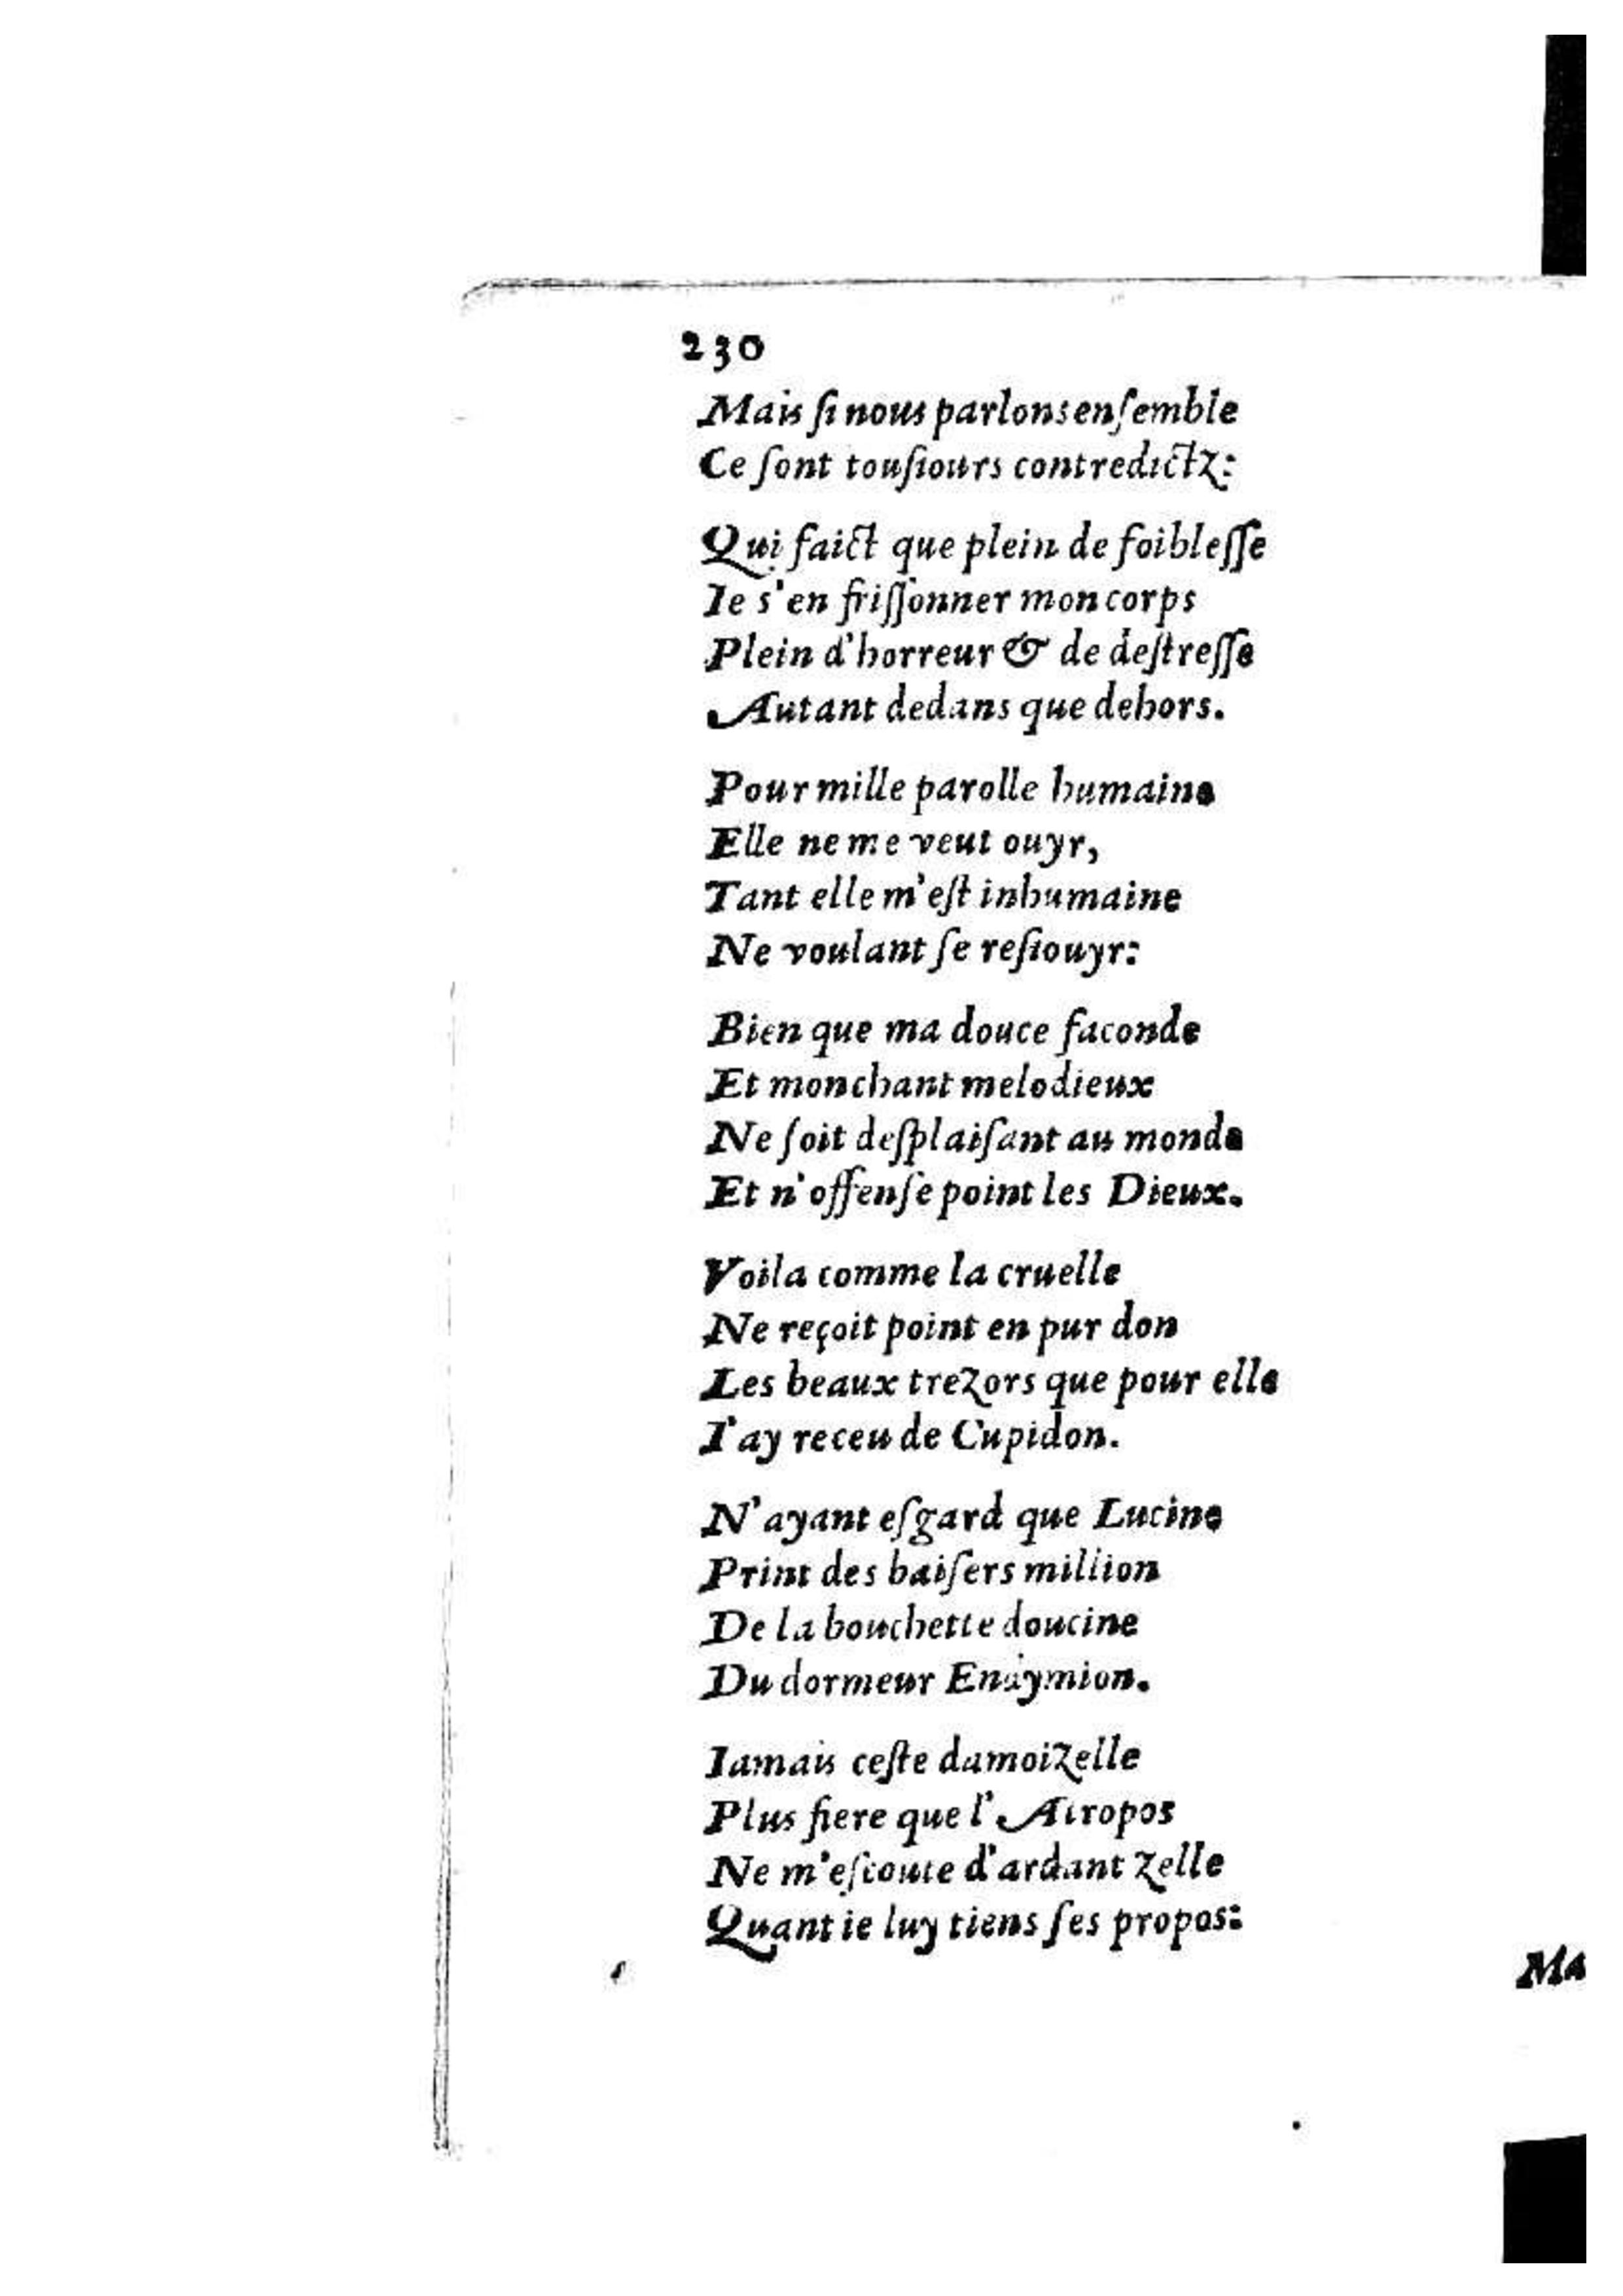 230
Mais ſi nous parlons enſemble
Ce ſont touſiours contredictz:
Qui faict que plein de foibleſſe
Ie s'en friſſonner mon corps
Plein d'horreur & de deſtreſſe
Autant dedans que dehors.
Pour mille parolle humaine
Elle ne me veut ouyr,
Tant elle m'eſt inhumaine
Ne voulant ſe reſiouyr:
Bien que ma douce faconde
Et mon chant melodieux
Ne ſoit deſplaiſant au monde
Et n'offenſe point les Dieux.
Voila comme la cruelle
Ne reçoit point en pur don
Les beaux trezors que pour elle
I'ay receu de Cupidon.
N'ayant eſgard que Lucine
Print des baiſers million
De la bouchette doucine
Du dormeur Endymion.
Iamais ceſte damoizelle
Plus fiere que l'Atropos
Ne m'eſcoute d'ardant zelle
Quant ie luy tiens ſes propos:
Ma